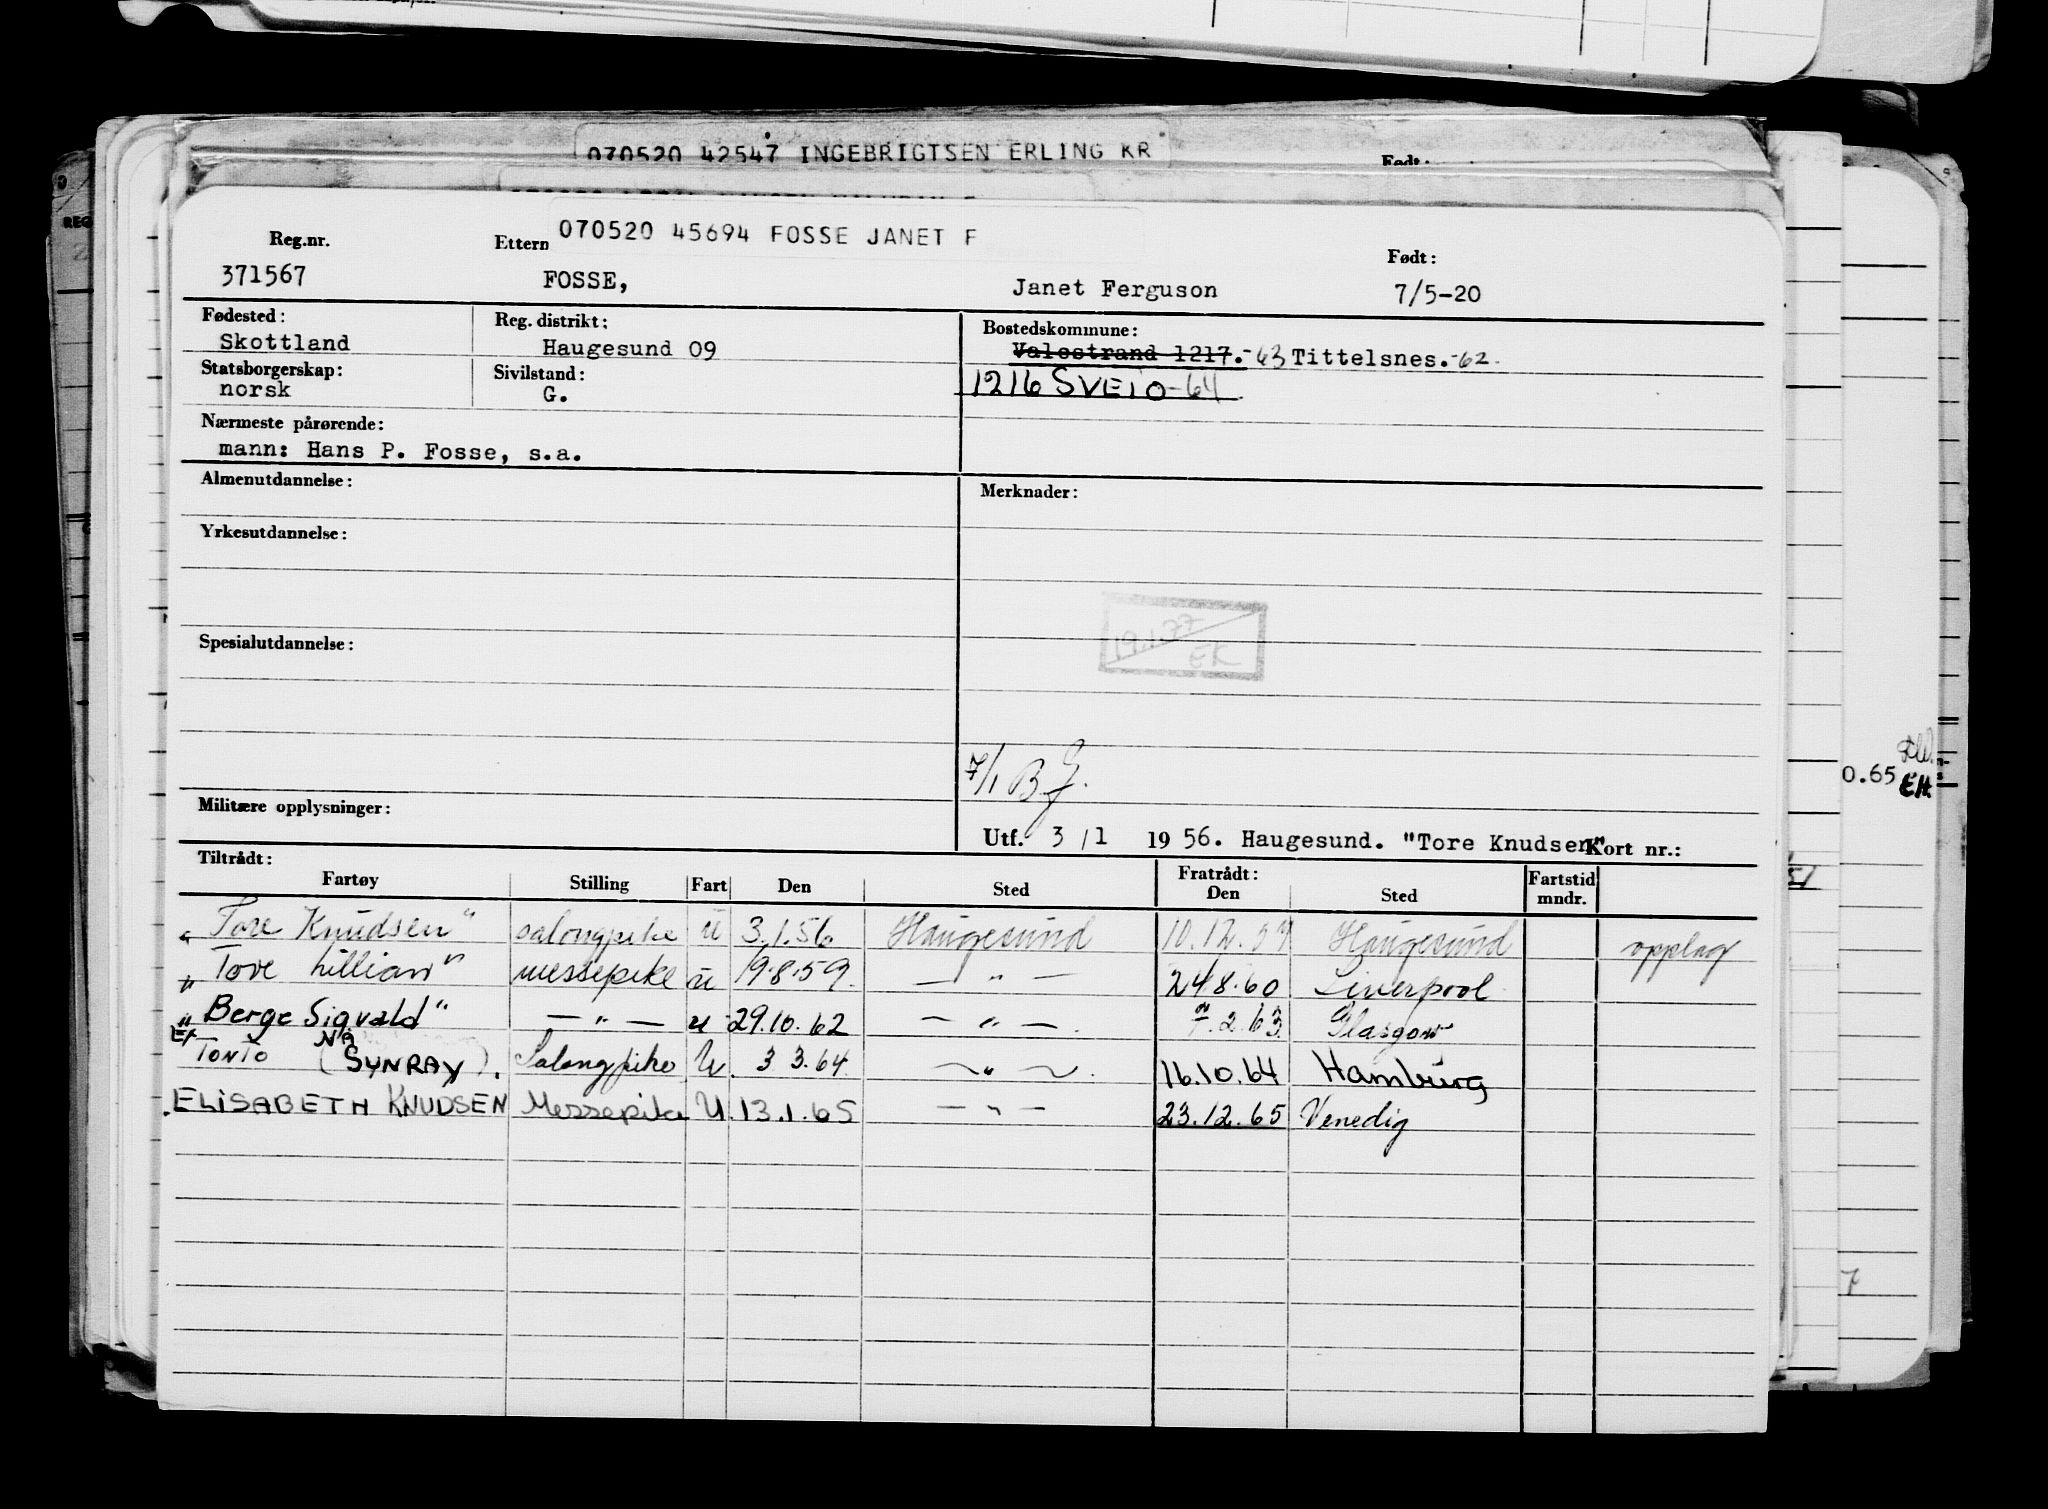 070520 42547 INGEBRIGTSEN ERLING KR
Født:
070520 45694 FOSSE JANET F
Reg.nr. Ettern Født:
371567 FOSSE, Janet Ferguson 7/5-20
Fødested: Reg. distrikt: Bostedskommune:
Skottland Haugesund 09 Valestrand 1217.-63 Tittelsnes.-62.
Statsborgerskap: Sivilstand: 1216 SVEIO-64
norsk G.
Nærmeste pårørende:
mann: Hans P. Fosse, s.a.
Almenutdannelse: Merknader:
Yrkesutdannelse:
19.1.77
EK
Spesialutdannelse:
7/1 B
0.65
EH.
Militære opplysninger:
Utf. 3/1 1956. Haugesund. "Tore Knudsen" Kort nr.:
Tiltrådt: Fratrådt:
Fartøy Stilling Fart Den Sted Den Sted Fartstid mndr.
"Tore Knudsen" salongpike u 3.1.56 Haugesund 10.12. Haugesund opplag
"Tove Lillian" messepike u 19.8.59. — " — 24.8.60 Liverpool
"Berge Sigvald" — " — u 29.10.62 — " — . 2.63 Glasgow
Ex TONTO (NÅ SYNRAY). Salongpike U. 3 3.64. — " — . 16.10.64 Hamburg
ELISABETH KNUDSEN Messepike U. 13.1.65 — " — 23.12.65 Venedig